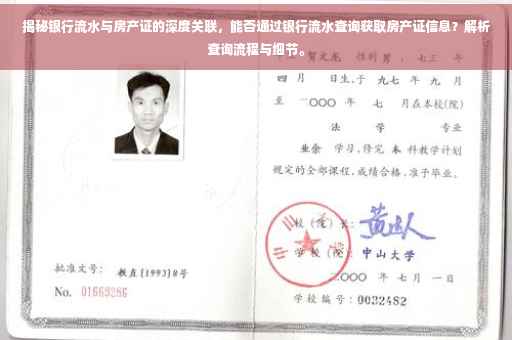 揭秘银行流水与房产证的深度关联，能否通过银行流水查询获取房产证信息？解析
查询流程与细节。
贺文龙 性别男，七三 年
四 月 日生,于 九七 年 九 月
至 二〇〇〇 年 七 月在本校(院)
法 学 专业
业余 学习,修完 本 科教学计划
规定的全部课程,成绩合格,准予毕业。
校（院）长：
学 校（院）： 中山大学
批准文号： 教直[1993]8号
二〇〇〇 年 七 月 一 日
No. 01669286
学校编号：0032482
中山大